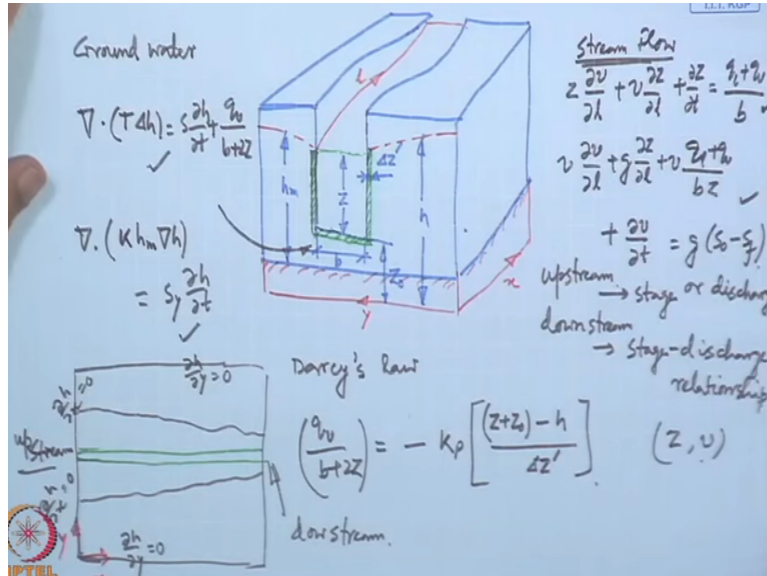 I.I.T. KGP
Ground water
∇·(T Δh) = S ∂h/∂t + q_w/(b+2Z)
∇·(K h_m ∇h)
= S_y ∂h/∂t
l
h_m
Z
ΔZ'
h
b
Z_o
y
x
Stream flow
z ∂v/∂l + v ∂z/∂l + ∂z/∂t = (q_l+q_w)/b
v ∂v/∂l + g ∂z/∂l + v (q_l+q_w)/(bz)
+ ∂v/∂t = g(S_o-S_f)
upstream
→ stage or discharg
downstream
→ stage-discharge
relationship
Darcy's law
(q_w/(b+2Z)) = - K_p [((Z+Z_o)-h)/ΔZ']
(Z, v)
∂h/∂y=0
upstream
∂h/∂y=0
dowstream.
y
NPTEL